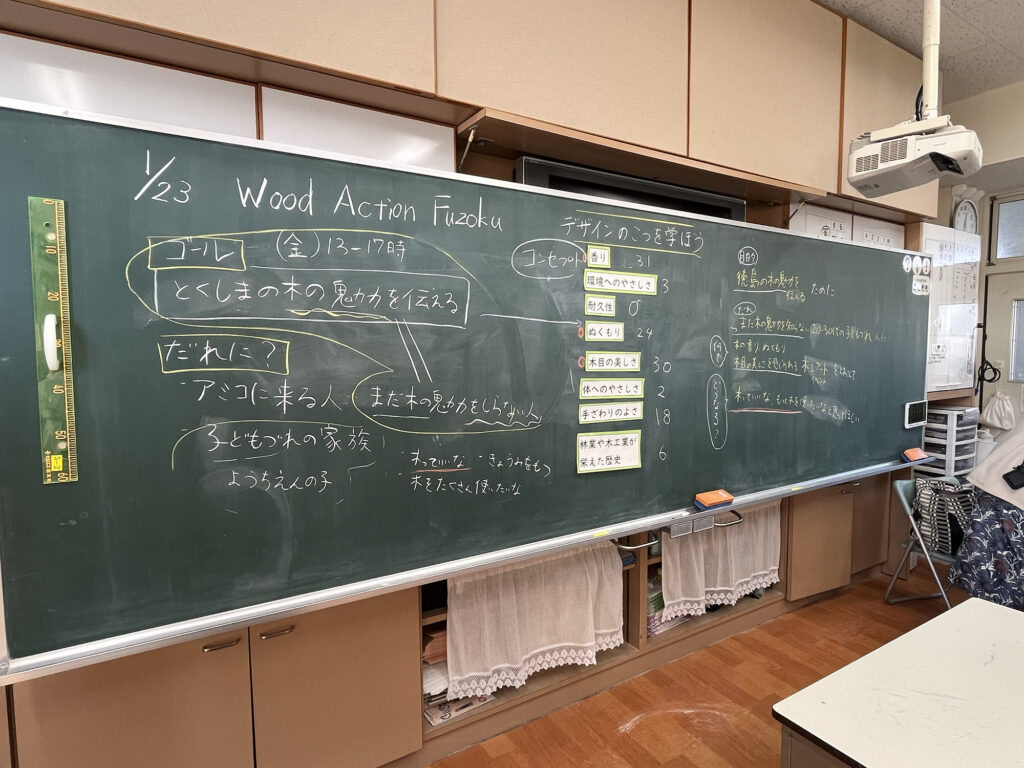 1/23 Wood Action Fuzoku
ゴール (金) 13-17時
とくしまの木の魅力を伝える
だれに?
・アミコに来る人
子どもづれの家族
ようちえんの子
まだ木の魅力をしらない人
・木っていいな ・きょうみをもつ
木をたくさん使いたいな
デザインのこつを学ぼう
コンセプト
香り 31
環境へのやさしさ 3
耐久性 0
ぬくもり 24
木目の美しさ 30
体へのやさしさ 2
手ざわりのよさ 18
林業や木工業が
栄えた歴史 6
目的
徳島の木の魅力を
伝える ために
だれ
まだ木の魅力を知らない 20〜30代の子育てづれ 人に
木の香り ぬくもり
木っていいな